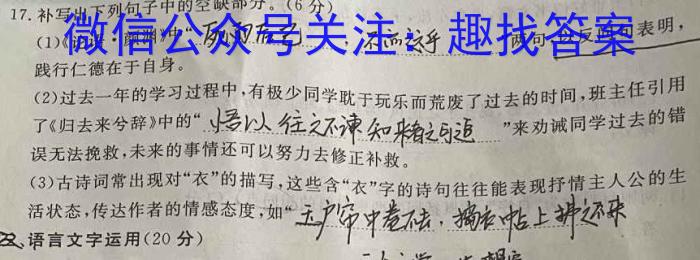 17.补写出下列句子中的空缺部分。(6分)
微信公众号关注：趣找答案
(1)《 》中“ ”两句以反问句表明，
践行仁德在于自身。
(2)过去一年的学习过程中，有极少同学耽于玩乐而荒废了过去的时间，班主任引用
了《归去来兮辞》中的“悟以往之不谏知来者之可追”来劝诫同学过去的错
误无法挽救，未来的事情还可以努力去修正补救。
(3)古诗词常出现对“衣”的描写，这些含“衣”字的诗句往往能表现抒情主人公的生
活状态，传达作者的情感态度，如“玉户帘中卷不去，捣衣砧上拂还来
二、语言文字运用(20分)